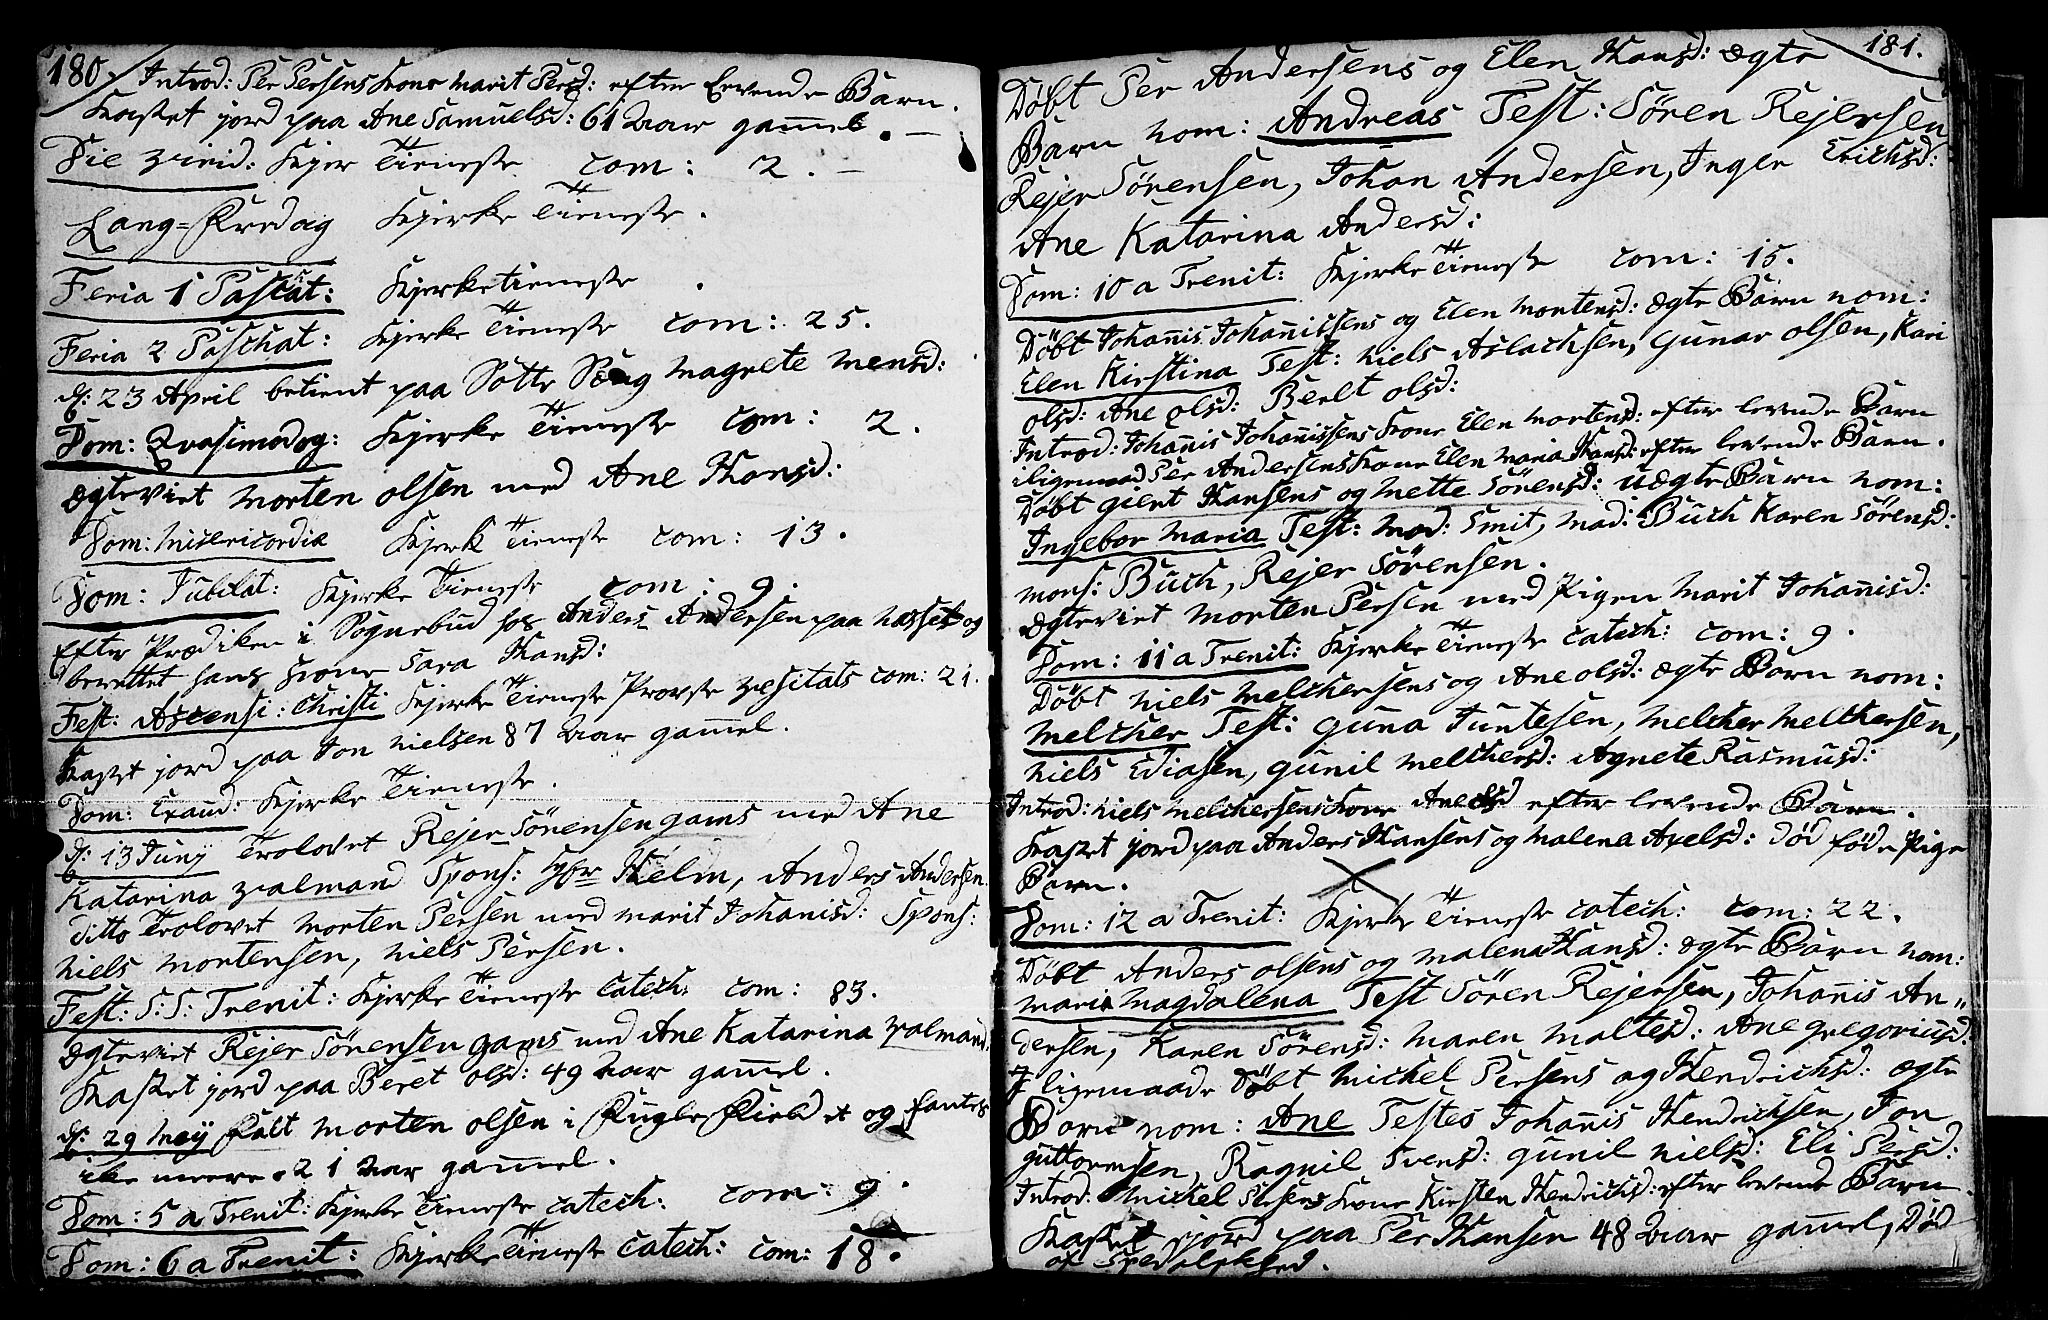 180.
Introd: Per Persens Kone Marit Persd: efter Levende Barn.
Kastet jord paa Ane Samuelsd: 61 Aar gammel. —
Die virid: Kjerke Tieneste com: 2. —
Lang=Fredag Kjerke Tieneste.
Feria 1 Paschat: Kjerke tieneste.
Feria 2 Paschat: Kjerke Tieneste com: 25.
d: 23 April betient paa Sotte Seng Magrete Mensd:
Dom: Qvasimodog: Kjerke Tieneste com: 2.
Ægteviet Morten Olsen med Ane Hansd:
Dom: Misericordia Kjerke Tieneste com: 13.
Dom: Jubilat: Kjerke Tieneste com: 9.
Efter Prædiken i Sognebud hos Anders Andersen paa Hasset og
berettet hans Kone Sara Hansd:
Fest: Ascensi: Christi Kjerke Tieneste Provste Vesitats com: 21.
Kastet jord paa Jon Nielsen 87 Aar gammel.
Dom: Exaud: Kjerke Tieneste.
d: 13 Juny Trolovet Rejer Sörensen gams med Ane
Katarina Valmand Spons: Hr Helm, Anders Andersen.
ditto Trolovet Morten Persen med Marit Johanisd: Spons:
Niels Mortensen, Niels Persen.
Fest: S: S: Trenit: Kjerke Tieneste Catech: com: 83.
Ægteviet Rejer Sörensen gams med Ane Katarina Valmand.
Kastet jord paa Beret Olsd: 49 Aar gammel.
d: 29 Maij Falt Morten Olsen i Fugle Field et og fantes
ike meere. 21 Aar gammel.
Dom: 5 a Trenit: Kjerke Tieneste catech: com: 9.
Dom: 6 a Trenit: Kjerke Tieneste Catech: com: 18.
181.
Döbt Per Andersens og Elen Hansd: ægte
Barn nom: Andreas Test: Sören Rejersen
Rejer Sörensen, Johan Andersen, Inger Erichsd:
Ane Katarina Andersd:
Dom: 10 a Trenit: Kjerke Tieneste com: 15.
Döbt Johannis Johannissens og Elen Mortensd: ægte Barn nom:
Elen Kirstina Test: Niels Aslachsen, Gunar Olsen, Kari
Olsd: Ane Olsd: Berlt Olsd:
Introd: Johannis Johannissens Kone Elen Mortensd: efter levende Barn
iligemaad Per Andersens Kone Elen Maria Hansd: efter levende Barn.
Döbt Gient Hansens og Mette Sörensd: uægte Barn nom:
Ingebor Maria Test: Mad: Smit, Mad: Buch Karen Sörensd:
Mons: Buch, Rejer Sörensen.
Ægteviet Morten Persen med Pigen Marit Johannisd:
Dom: 11 a Trenit: Kjerke Tieneste Catech: com: 9.
Döbt Niels Melchersens og Ane Olsd: ægte Barn nom:
Melcher Test: Guna Juntesen, Melcher Melchersen,
Niels Ediasen, Gunil Melchersd: Agnete Rasmusd:
Introd: Niels Melchersens Kone Ane Olsd efter levende Barn.
Kastet jord paa Anders Hansens og Malena Axelsd: død føde Pige
Barn.
Dom: 12 a Trenit: Kjerke Tieneste Catech: com: 22.
Döbt Anders Olsens og Malena Hansd: ægte Barn nom:
Maria Magdalena Test Sören Rejersen, Johannis An„
dersen, Karen Sörensd: Maren Maltesd: Ane Gregoriusd:
Iligemaade Döbt Mickel Persens og Hendrichsd: ægte
Barn nom: Ane Testes Johannis Hendrichsen, Jon
Guttormsen, Ragnil Svensd: Gunil Nielsd: Eli Persd:
Introd: Mickel Persens Kone Kirsten Hendrichsd: efter levende Barn.
Kastet jord paa Per Hansen 48 Aar gammel, Död
af Spedalskhed.